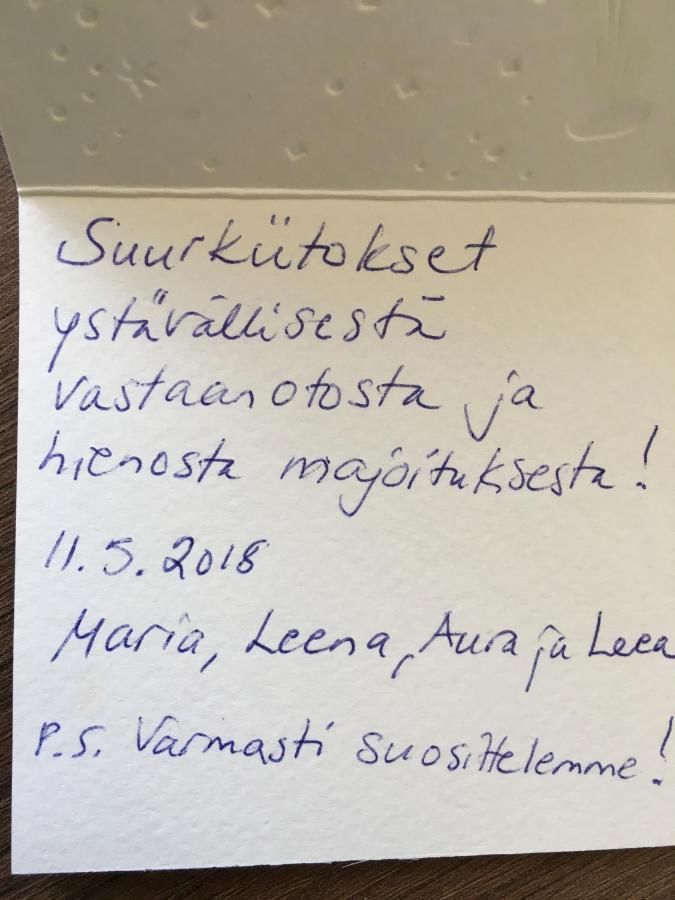 Suurkiitokset
ystävällisestä
vastaanotosta ja
hienosta majoituksesta!
11.5.2018
Maria, Leena, Aura ja Leea
P.S. Varmasti suosittelemme!